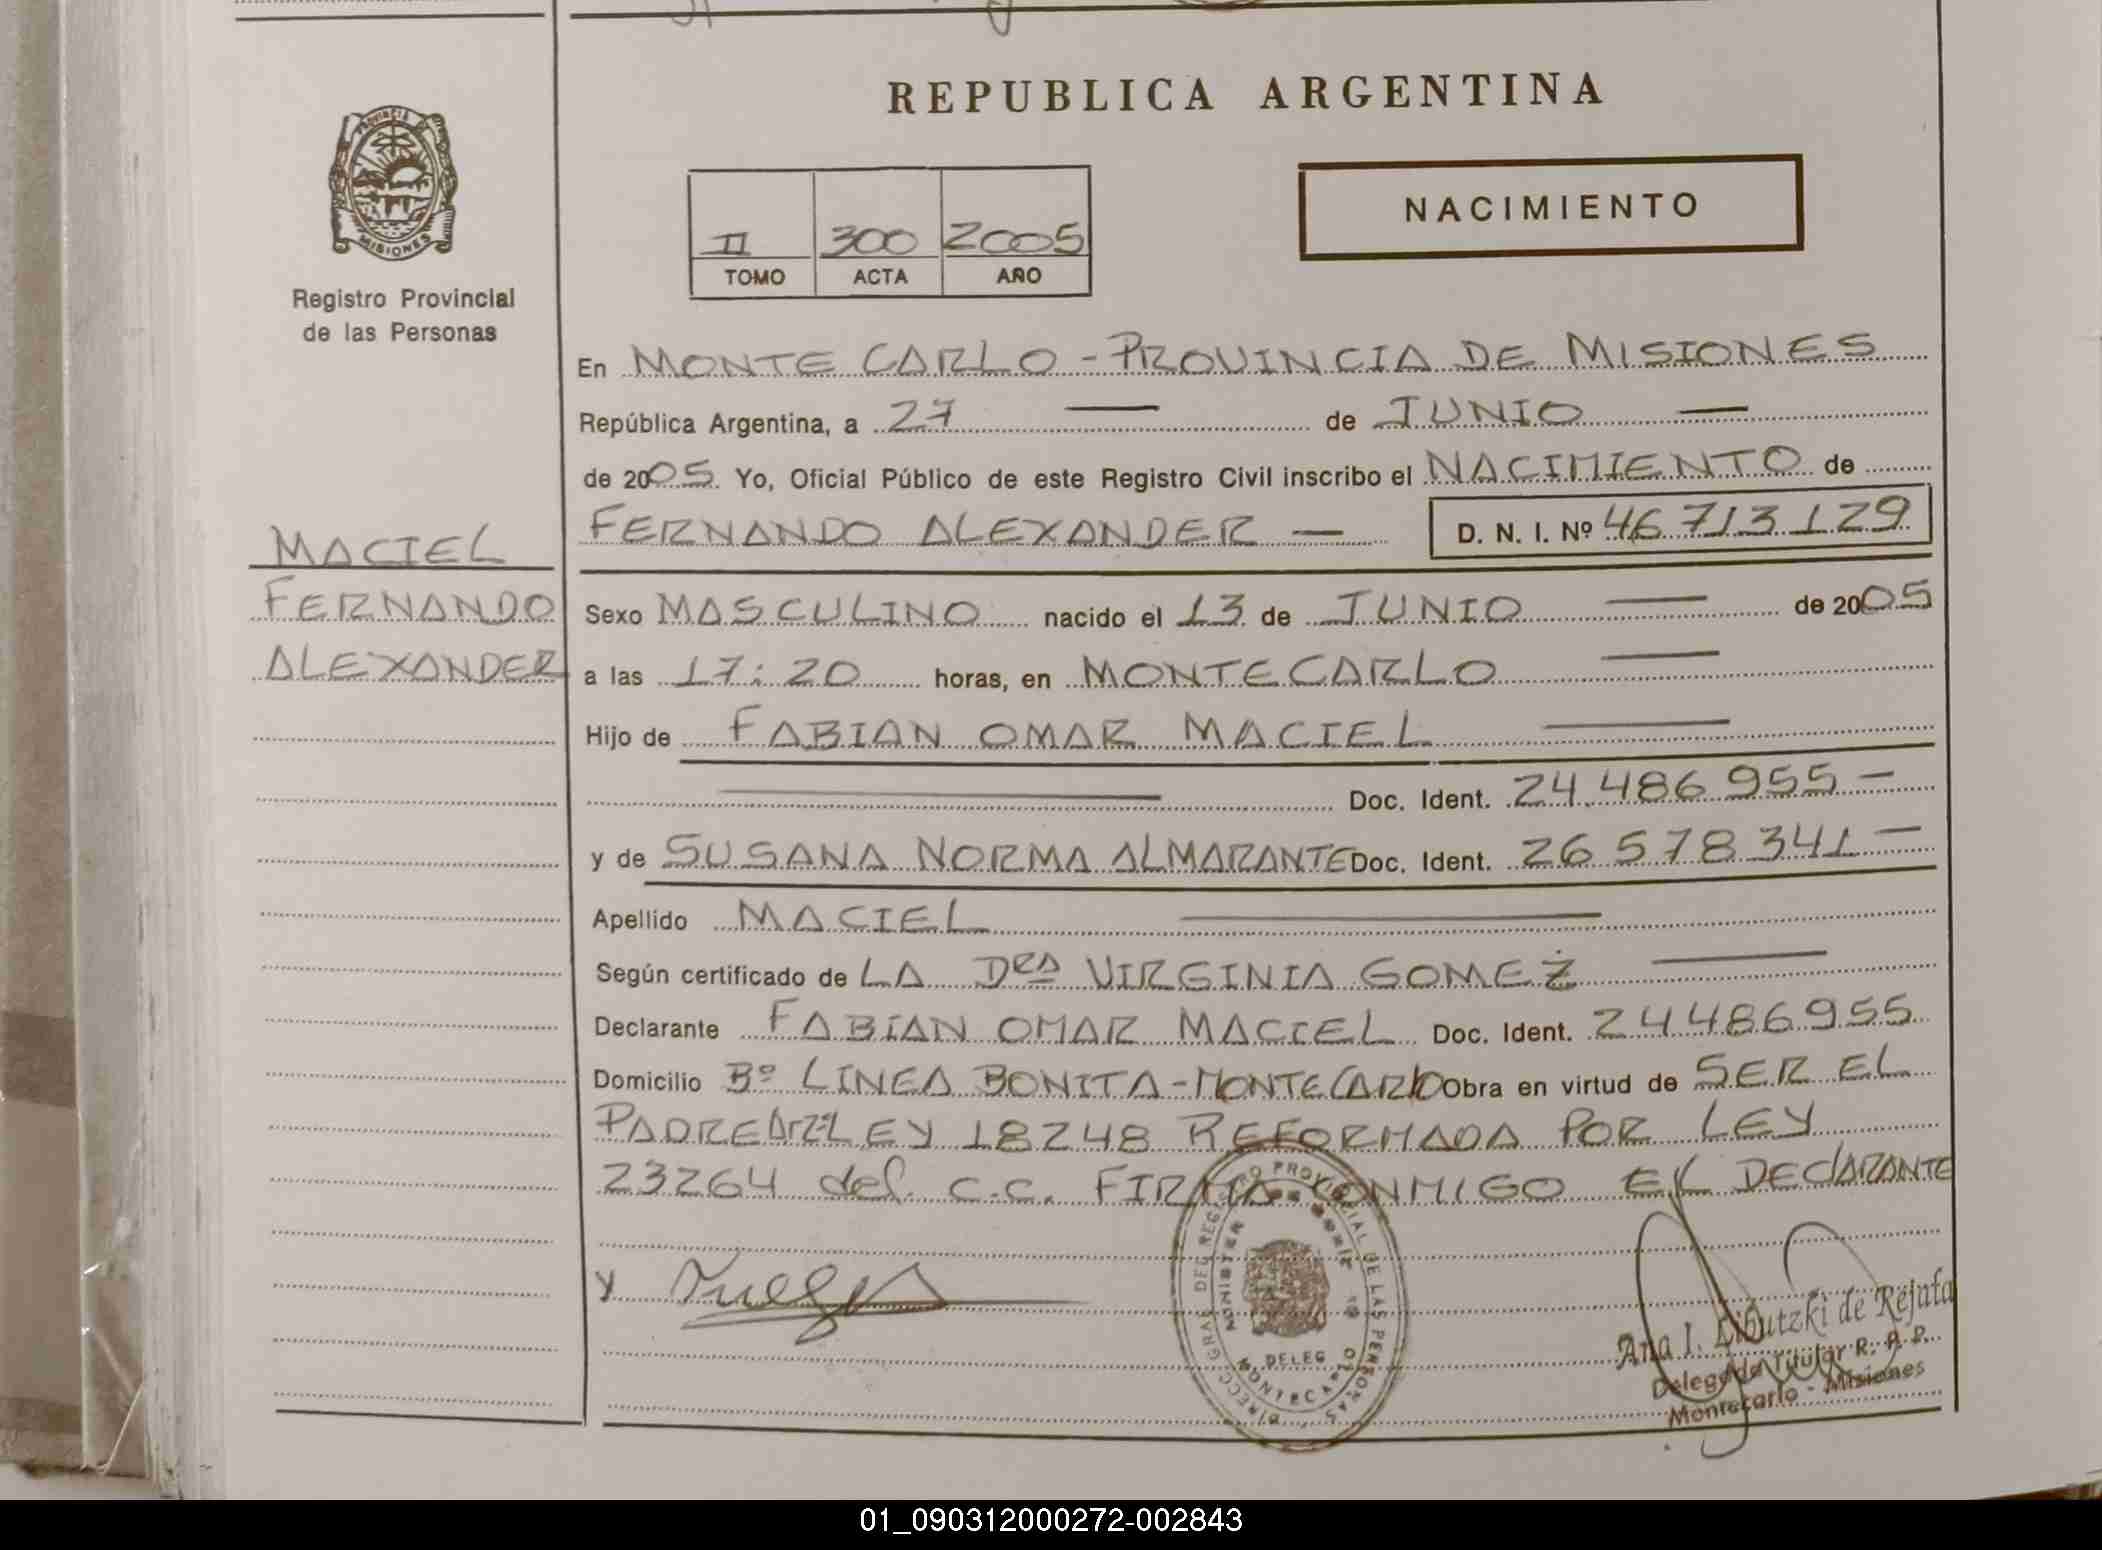 REPUBLICA ARGENTINA
PROVINCIA DE
MISIONES
Registro Provincial
de las Personas
NACIMIENTO
II 300 2005
TOMO ACTA AÑO
En MONTE CARLO - PROVINCIA DE MISIONES
República Argentina, a 27 — de JUNIO —
de 2005. Yo, Oficial Público de este Registro Civil inscribo el NACIMIENTO de
FERNANDO ALEXANDER — D. N. I. Nº 46.713.129
MACIEL
FERNANDO
ALEXANDER
Sexo MASCULINO nacido el 13 de JUNIO — de 2005
a las 17:20 horas, en MONTECARLO —
Hijo de FABIAN OMAR MACIEL —
— Doc. Ident. 24.486.955 —
y de SUSANA NORMA ALMARANTE Doc. Ident. 26 578 341 —
Apellido MACIEL —
Según certificado de LA DRA VIRGINIA GOMEZ —
Declarante FABIAN OMAR MACIEL Doc. Ident. 24486955
Domicilio Bº LINEA BONITA - MONTECARLO Obra en virtud de SER EL
PADRE LEY 18248 REFORMADA POR LEY
23264 del C.C. FIRMA CONMIGO EL DECLARANTE
y
DIRECC. GRAL. DEL REGISTRO PROVINCIAL DE LAS PERSONAS
DELEG
MONTECARLO
Ana I. Libutzki de Rejala
Delegada Titular R. P. P.
Montecarlo - Misiones
01_090312000272-002843